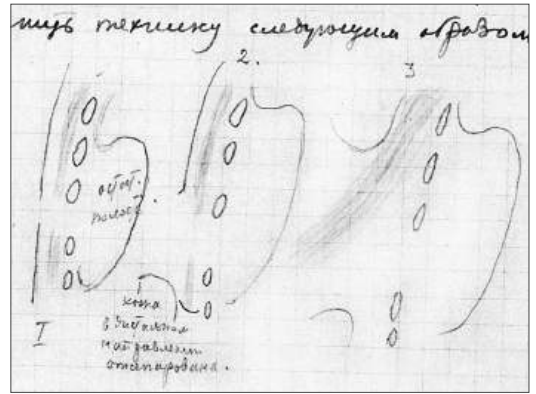 нить технику следующим образом
2.
3
остат.
полост.
I
кожа
в дистальном
направлении
отсепарована.